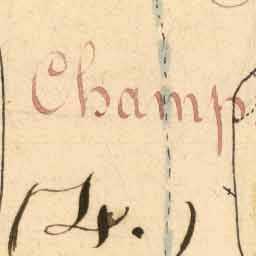 Champ
(4.)